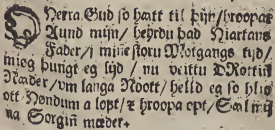 DRotta. Gud so hætt til þijn/ hroopar
Aund mijn/ heyrdu þad Hiartans
Fader/ j mine storu Motgangs tijd/
mieg þungt eg lijd / nu veittu DRottin
Næder/ vm langa Noott/ helld eg so hlio
ott Hondum a lopt/ z hroopa opt/ Sæl
na Sorgin mæder.